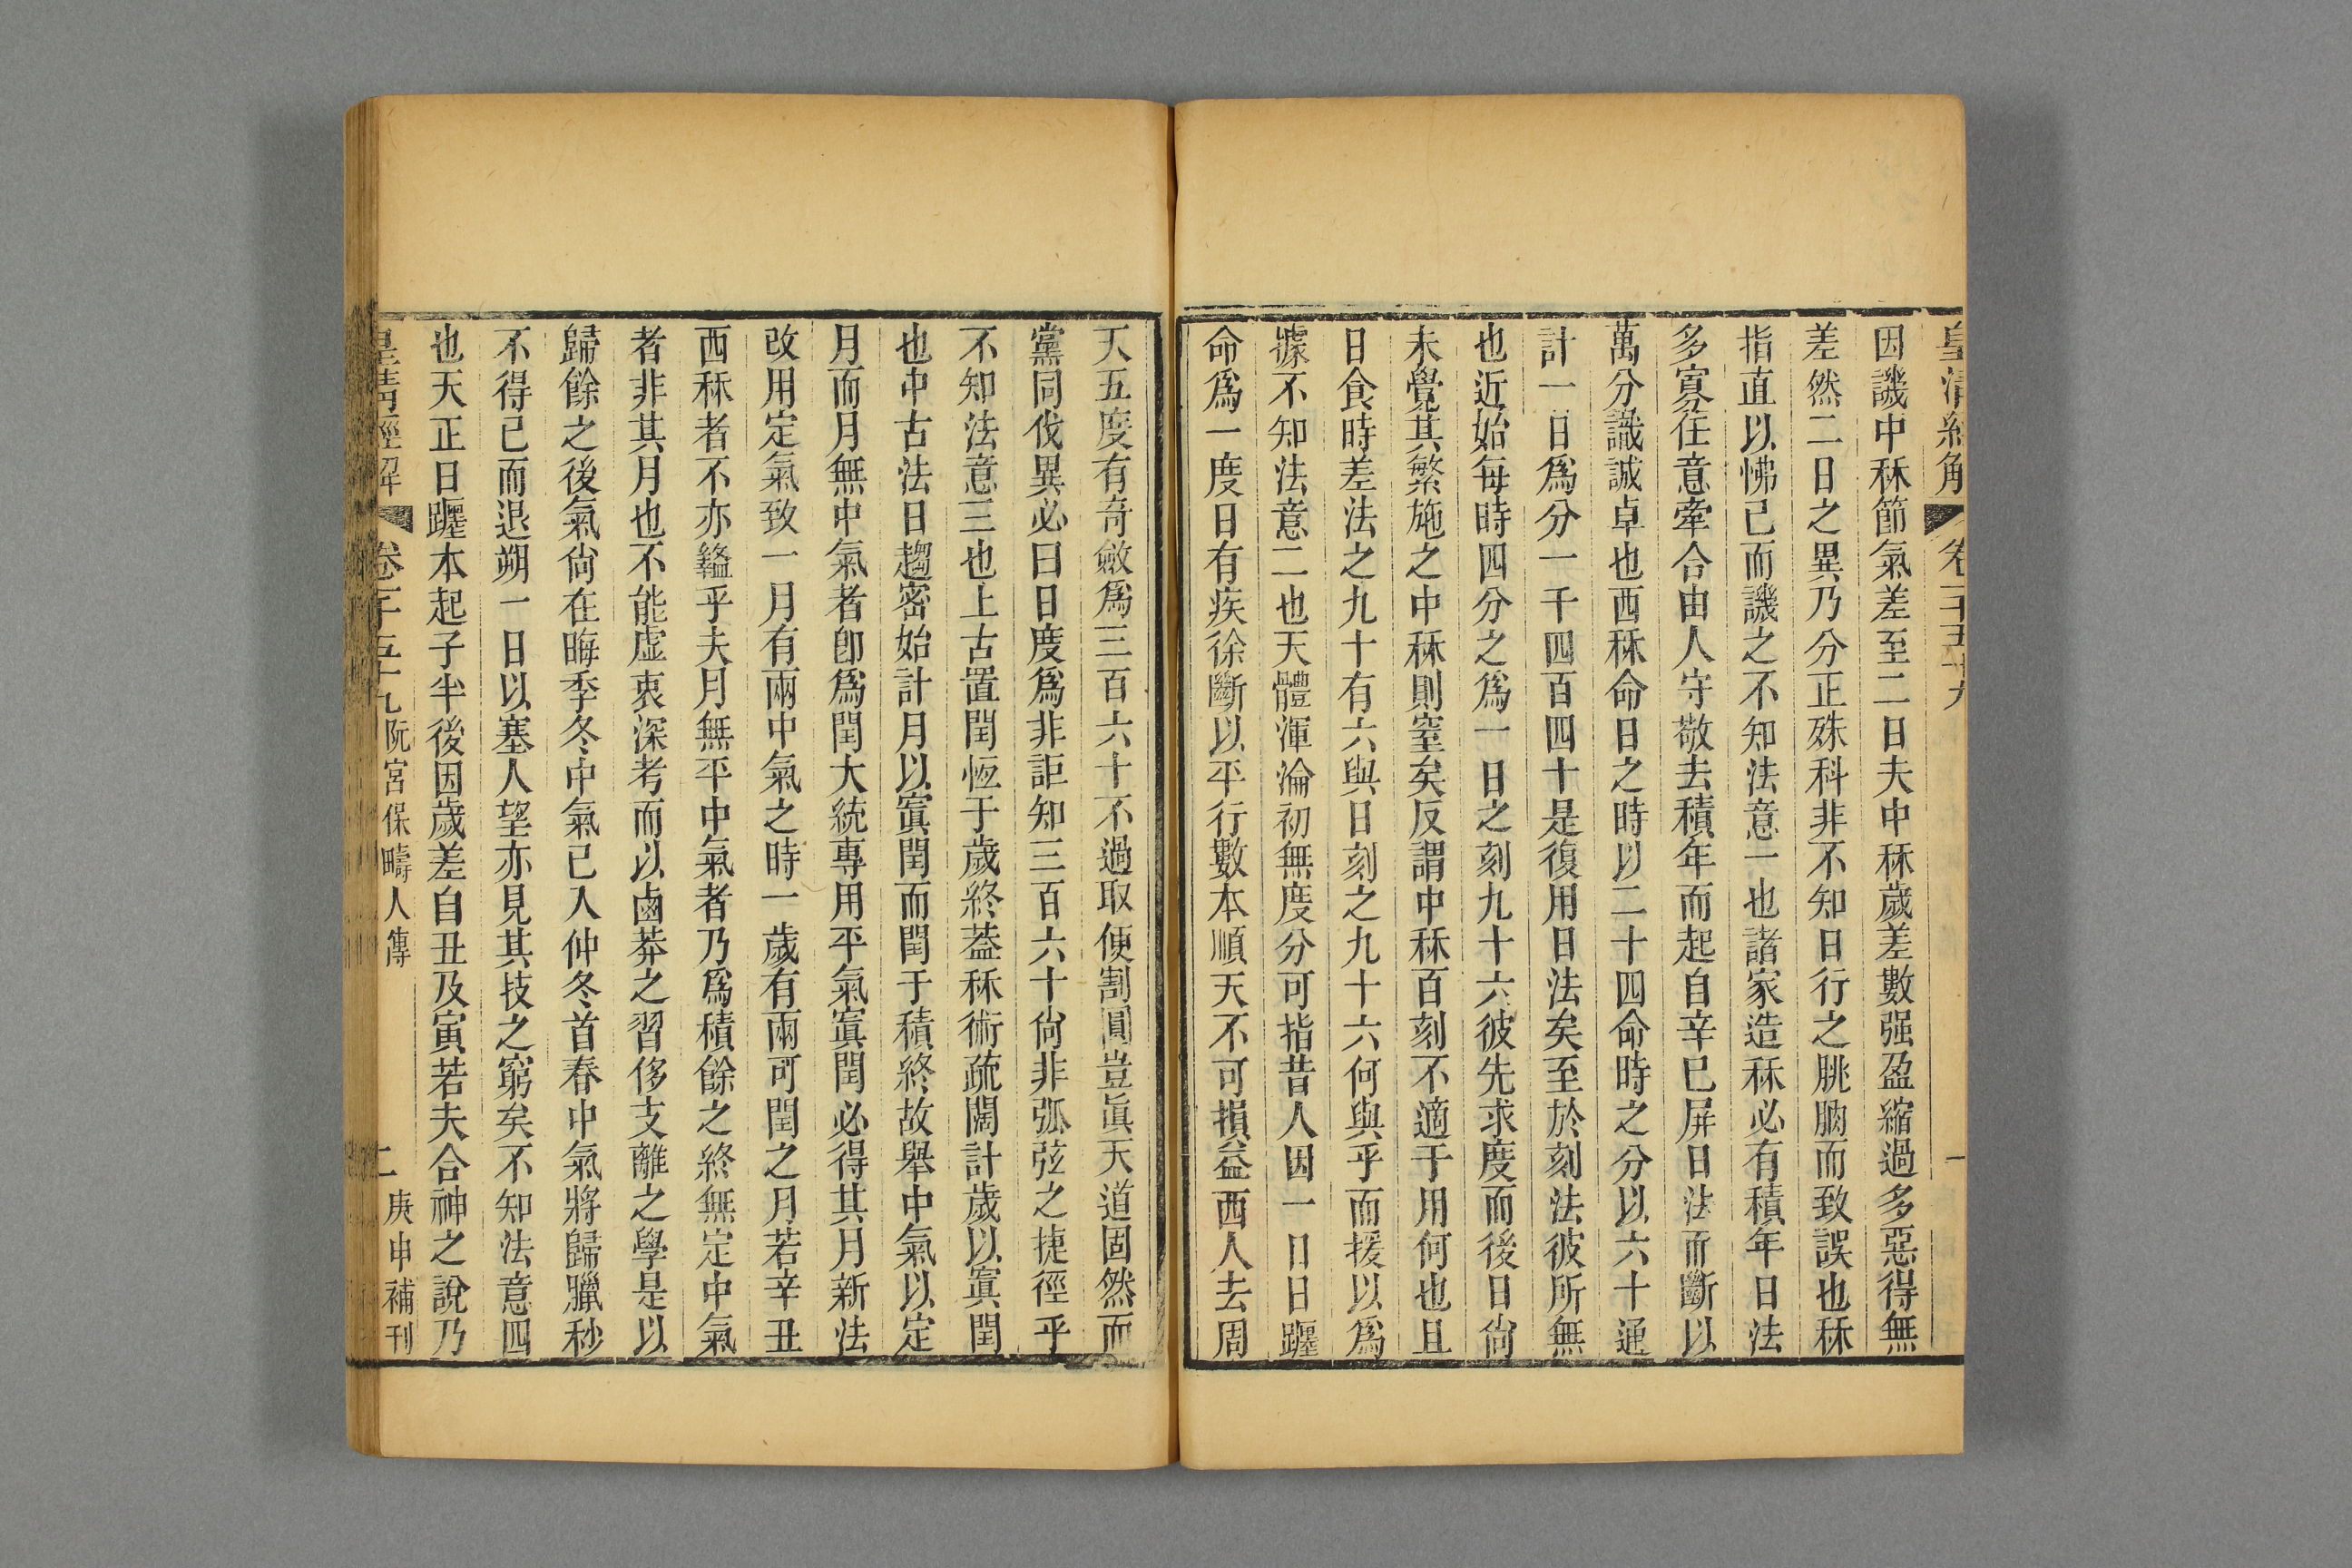 皇清經解 卷一千五十九 一
因譏中秝節氣差至二日夫中秝歲差數强盈縮過多惡得無
差然二日之異乃分正殊科非不知日行之朓朒而致誤也秝
指直以怫己而譏之不知法意一也諸家造秝必有積年日法
多寡任意牽合由人守敬去積年而起自辛巳屏日法而斷以
萬分識誠卓也西秝命日之時以二十四命時之分以六十通
計一日爲分一千四百四十是復用日法矣至於刻法彼所無
也近始每時四分之爲一日之刻九十六彼先求度而後日尙
未覺其繁施之中秝則窒矣反謂中秝百刻不適于用何也且
日食時差法之九十有六與日刻之九十六何與乎而援以爲
據不知法意二也天體渾淪初無度分可指昔人因一日日躔
命爲一度日有疾徐斷以平行數本順天不可損益西人去周
天五度有奇斂爲三百六十不過取便割圓豈眞天道固然而
黨同伐異必曰日度爲非詎知三百六十尙非弧弦之捷徑乎
不知法意三也上古置閏恆于歲終葢秝術疏闊計歲以寘閏
也中古法日趨密始計月以寘閏而閏于積終故舉中氣以定
月而月無中氣者卽爲閏大統專用平氣寘閏必得其月新法
改用定氣致一月有兩中氣之時一歲有兩可閏之月若辛丑
西秝者不亦盭乎夫月無平中氣者乃爲積餘之終無定中氣
者非其月也不能虛衷深考而以鹵莽之習侈支離之學是以
歸餘之後氣尙在晦季冬中氣已入仲冬首春中氣將歸臘秒
不得已而退朔一日以塞人望亦見其技之窮矣不知法意四
也天正日躔本起子半後因歲差自丑及寅若夫合神之說乃
皇清經解 卷一千五十九 阮宮保疇人傳 二 庚申補刊